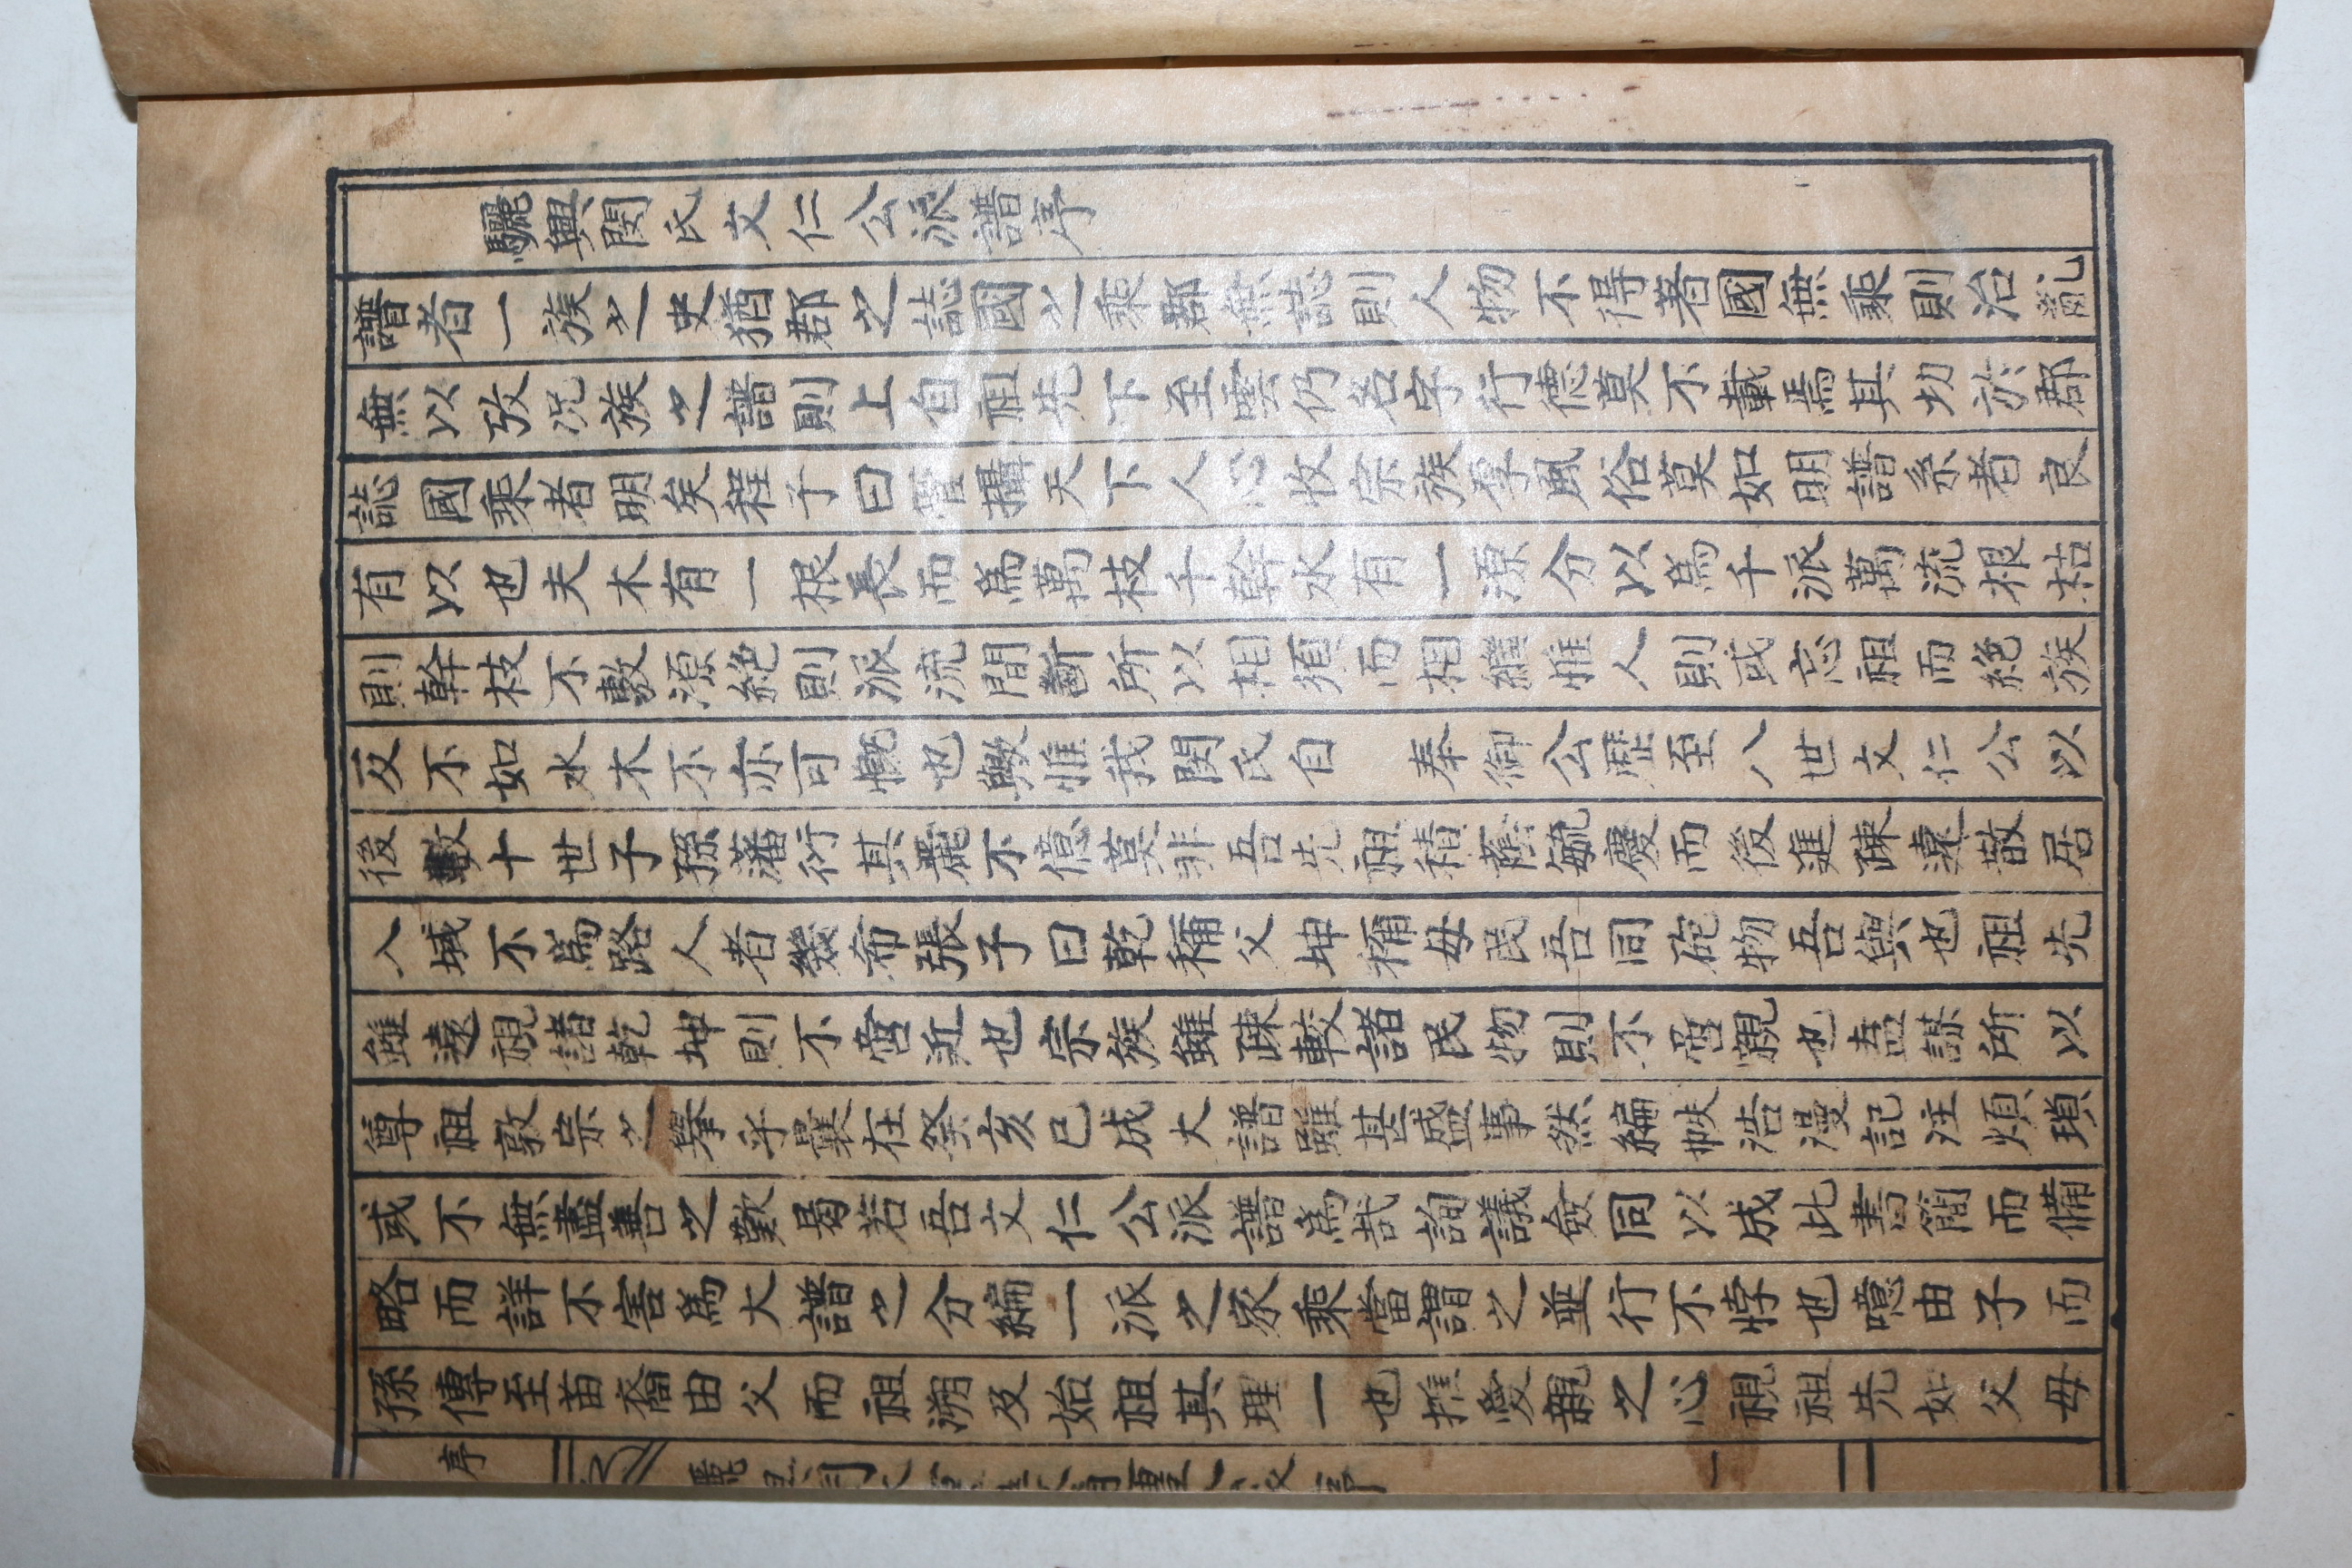 驪興閔氏文仁公派譜序
譜者一族之史猶郡之誌國之乘郡無誌則人物不得著國無乘則治亂
無以攷況族之譜則上自祖先下至雲仍名字行德莫不載焉其切於郡
誌國乘者明矣程子曰管攝天下人心收宗族厚風俗莫如明譜系者良
有以也夫木有一根長而爲萬枝千幹水有一源分以爲千派萬流根枯
則幹枝不敷源絶則派流間斷所以相須而相繼惟人則或忘祖而絶族
反不如水木不亦可慨也歟惟我閔氏自 奉御公歷至八世文仁公以
後數十世子孫藩衍其麗不億莫非吾先祖積蔭毓慶而後進疎遠散居
入城不爲路人者幾希張子曰乾稱父坤稱母民吾同砲物吾與也祖先
雖遠視諸乾坤則不啻近也宗族雖疎較諸民物則不啻親也盍謀所以
尊祖敦宗之擧乎曩在癸亥已成大譜雖甚盛事然編帙浩漫記注煩瑣
或不無盡善之歎曷若吾文仁公派譜爲哉詢議僉同以成此書簡而備
略而詳不害爲大譜之分編一派之家乘當謂之並行不悖也噫由子而
孫傳至苗裔由父而祖溯及始祖其理一也推愛親之心視祖先如父母
序
一